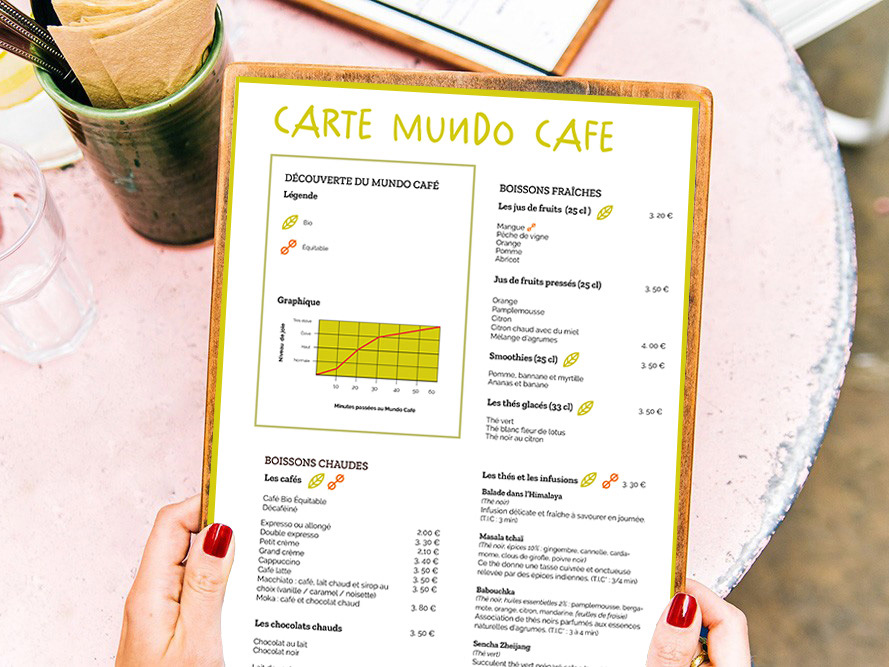 CARTE MUNDO CAFE
DÉCOUVERTE DU MUNDO CAFÉ
Légende
Bio
Équitable
Graphique
Niveau de joie
Haut
Normale
10 20 30 40 50 60
Minutes passées au Mundo Café
BOISSONS FRAÎCHES
Les jus de fruits (25 cl) 3. 20 €
Mangue
Pêche de vigne
Orange
Pomme
Abricot
Jus de fruits pressés (25 cl) 3. 50 €
Orange
Pamplemousse
Citron
Citron chaud avec du miel
Mélange d'agrumes 4. 00 €
Smoothies (25 cl) 3. 50 €
Pomme, bannane et myrtille
Ananas et banane
Les thés glacés (33 cl) 3. 50 €
Thé vert
Thé blanc fleur de lotus
Thé noir au citron
BOISSONS CHAUDES
Les cafés
Café Bio Équitable
Décaféiné
Expresso ou allongé 2.00 €
Double expresso 3. 30 €
Petit crème 2,10 €
Grand crème 3. 40 €
Cappuccino 3. 50 €
Cafe latte 3. 50 €
Macchiato : café, lait chaud et sirop au 3. 50 €
choix (vanille / caramel / noisette)
Moka : café et chocolat chaud 3. 80 €
Les chocolats chauds 3. 50 €
Chocolat au lait
Chocolat noir
Les thés et les infusions 3. 30 €
Balade dans l'Himalaya
(Thé noir)
Infusion délicate et fraîche à savourer en journée.
(T.I.C : 3 min)
Masala tchaï
(Thé noir, épices 10% : gingembre, cannelle, carda-
mome, clous de girofle, poivre noir)
Ce thé donne une tasse cuivrée et onctueuse
relevée par des épices indiennes. (T.I.C* : 3/4 min)
Babouchka
(Thé noir, huiles essentielles 2% : pamplemousse, berga-
mote, orange, citron, mandarine, feuilles de fraisie)
Association de thés noirs parfumés aux essences
naturelles d'agrumes. (T.I.C* : 3 à 4 min)
Sencha Zheijang
(Thé vert)
Succulent thé vert